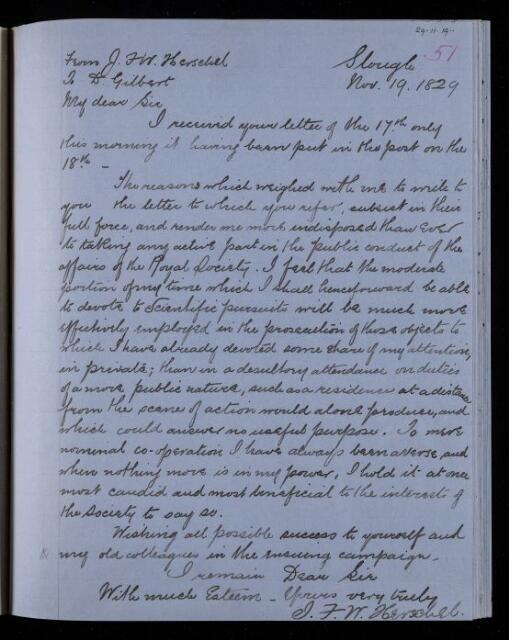 29-11-19
51
From J. F. W. Herschel Slough
To D. Gilbert Nov. 19. 1829
My dear Sir
I received your letter of the 17th only
this morning it having been put in the post on the
18th –
The reasons which weighed with me to write to
you the letter to which you refer, subsist in their
full force, and render me more indisposed than ever
to taking any active part in the public conduct of the
affairs of the Royal Society. I feel that the moderate
portion of my time which I shall henceforward be able
to devote to Scientific pursuits will be much more
effectively employed in the prosecution of those objects to
which I have already devoted some share of my attention,
in private; than in a desultory attendance on duties
of a more public nature, such as a residence at a distance
from the scene of action would alone produce, and
which could answer no useful purpose. To mere
nominal co-operation I have always been averse, and
when nothing more is in my power, I hold it at once
most candid and most beneficial to the interests of
the Society to say so.
Wishing all possible success to yourself and
my old colleagues in the ensuing campaign.
I remain Dear Sir
With much Esteem – Yours very truly
J. F. W. Herschel.